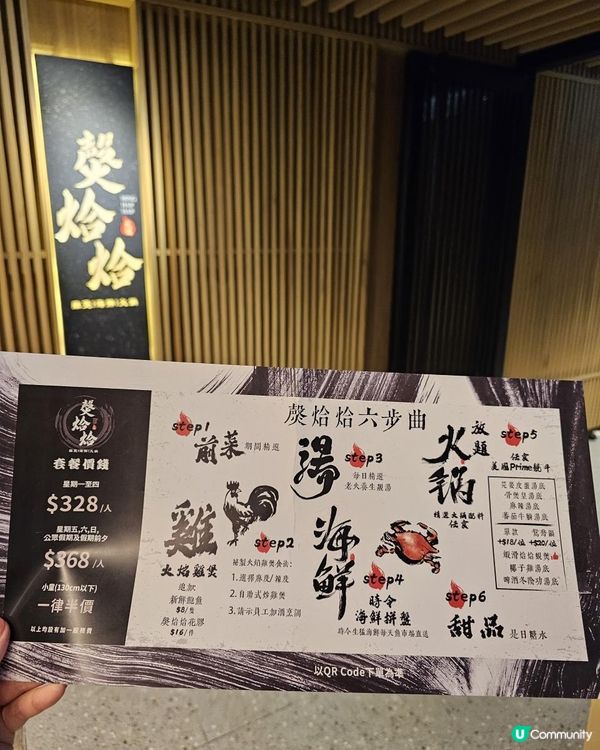 爕焓焓
雞煲|海鮮|火鍋
爕焓焓
雞煲|海鮮|火鍋
套餐價錢
星期一至四
$328/人
星期五,六,日,
公眾假期及假期前夕
$368/人
小童(130cm以下)
一律半價
以上均設有加一服務費
爕焓焓六步曲
step1
前菜
期間精選
雞
火焰雞煲
step2
追加
新鮮鮑魚
$8/隻
爕焓焓花膠
$16/件
秘製火焰雞煲食法:
1.選擇麻度/辣度
2.自助式炒雞煲
3.請示員工加酒烹調
湯
step3
每日精選
老火養生靚湯
海鮮
step4
時令
海鮮拼盤
時令生猛海鮮每天魚市場直送
火鍋
放題
精選火鍋配料
任食
step5
任食
美國Prime肥牛
芫荽皮蛋湯底
骨煲皇湯底
麻辣湯底
蕃茄牛腩湯底
單款 鴛鴦鍋
+$18/位 +$20/位
蝦滑焓焓蜆煲
椰子雞湯底
啤酒冬陰功湯底
step6
甜品
是日糖水
以QR Code下單為準
U Community